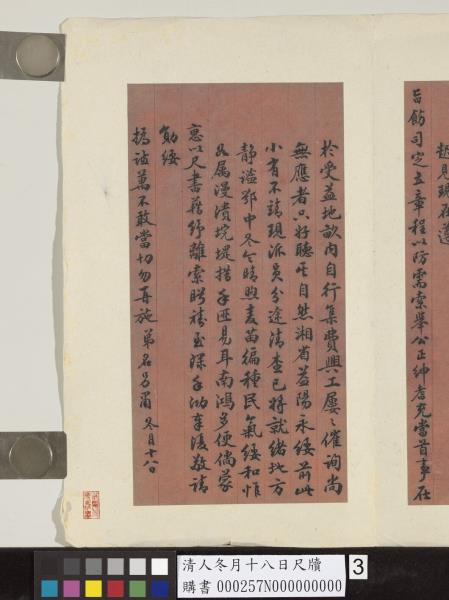 趨見現在遵
旨飭司定立章程以防需索舉公正紳耆充當首事在
於受益地畝內自行集費興工屢々催詢尚
無應者只好聽其自然湘省益陽永綏前此
小有不靖現派員分途清查已將就緒地方
靜謐鄂中冬令晴煦麥苗徧種民氣綏和惟
各属漫潰垸堤措手匪易耳南鴻多便倘蒙
惠以尺書藉紓離索盼禱至深手泐奉復敬請
勛綏
摀謙萬不敢當切勿再施 弟名另肅 冬月十八日
清人冬月十八日尺牘
購書 000257N000000000
3